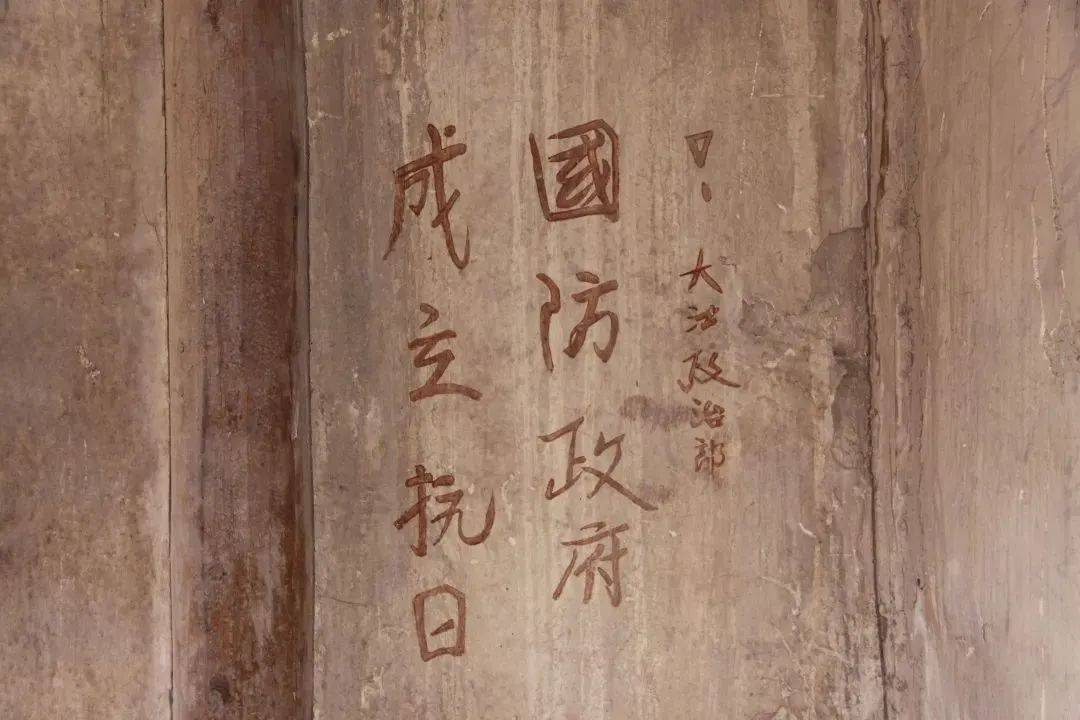 成立抗日
國防政府
！
大政治部